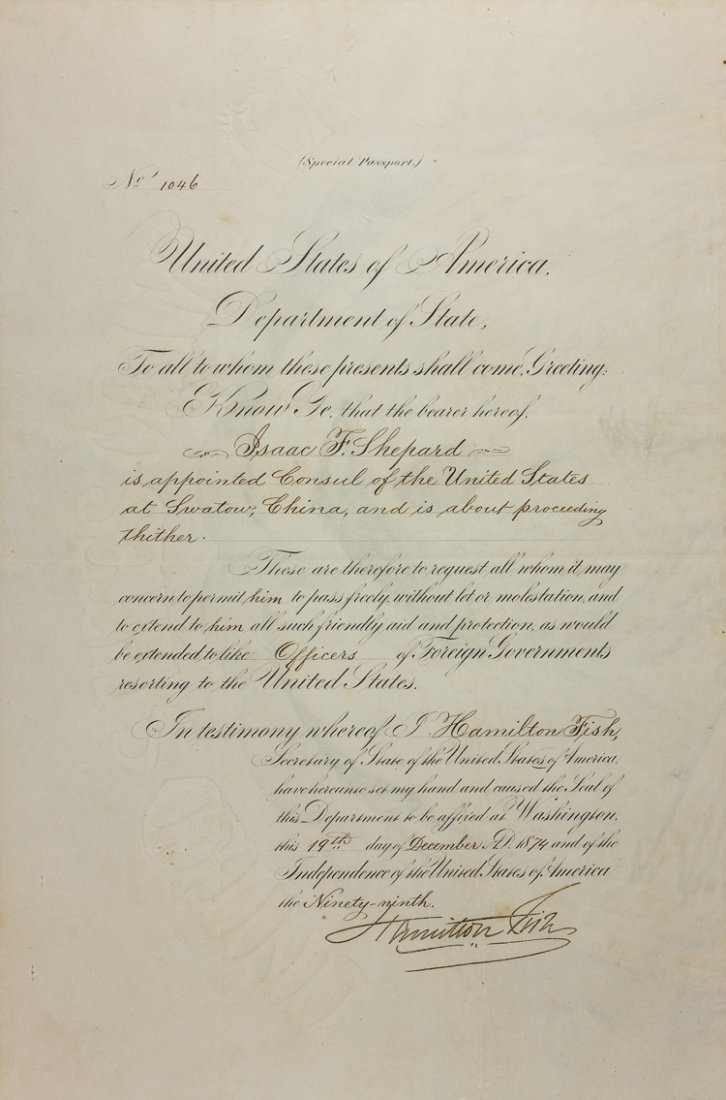 (Special Passport.)
No. 1046
United States of America,
Department of State,
To all to whom these presents shall come, Greeting:
Know Ye, that the bearer hereof,
Isaac F. Shepard
is appointed Consul of the United States
at Swatow, China, and is about proceeding
thither.
These are therefore to request all whom it may
concern to permit him to pass freely, without let or molestation, and
to extend to him all such friendly aid and protection, as would
be extended to like Officers of Foreign Governments
resorting to the United States.
In testimony whereof I, Hamilton Fish,
Secretary of State of the United States of America,
have hereunto set my hand and caused the Seal of
this Department to be affixed at Washington,
this 19th day of December A.D. 1874 and of the
Independence of the United States of America
the Ninety-ninth.
Hamilton Fish